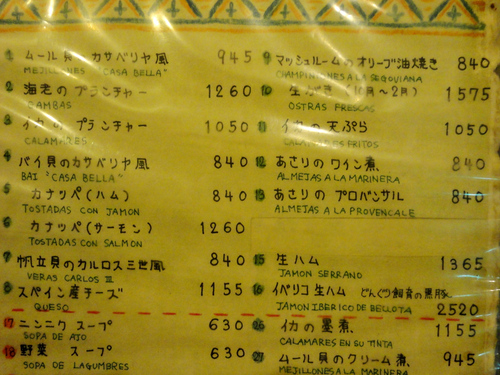 1 ムール貝のカサベリヤ風 945
MEJILLONES "CASA BELLA"
2 海老のプランチャー 1260
GAMBAS
3 イカのプランチャー 1050
CALAMARES
4 バイ貝のカサベリヤ風 840
BAI "CASA BELLA"
5 カナッペ(ハム) 840
TOSTADAS CON JAMON
6 カナッペ(サーモン) 1260
TOSTADAS CON SALMON
7 帆立貝のカルロス三世風 840
VERAS CARLOS III
8 スペイン産チーズ 1155
QUESO
17 ニンニクスープ 630
SOPA DE AJO
18 野菜スープ 630
SOPA DE LAGUMBRES
9 マッシュルームのオリーブ油焼き 840
CHAMPIÑONES A LA SEGOVIANA
10 生がき(10月〜2月) 1575
OSTRAS FRESCAS
11 イカの天ぷら 1050
CALAMARES FRITOS
12 あさりのワイン煮 840
ALMEJAS A LA MARINERA
13 あさりのプロバンサル 840
ALMEJAS A LA PROVENCALE
15 生ハム 1365
JAMON SERRANO
16 イベリコ生ハム どんぐり飼育の黒豚
JAMON IBERICO DE BELLOTA 2520
26 イカの墨煮 1155
CALAMARES EN SU TINTA
27 ムール貝のクリーム煮 945
MEJILLONES A LA MARINERA